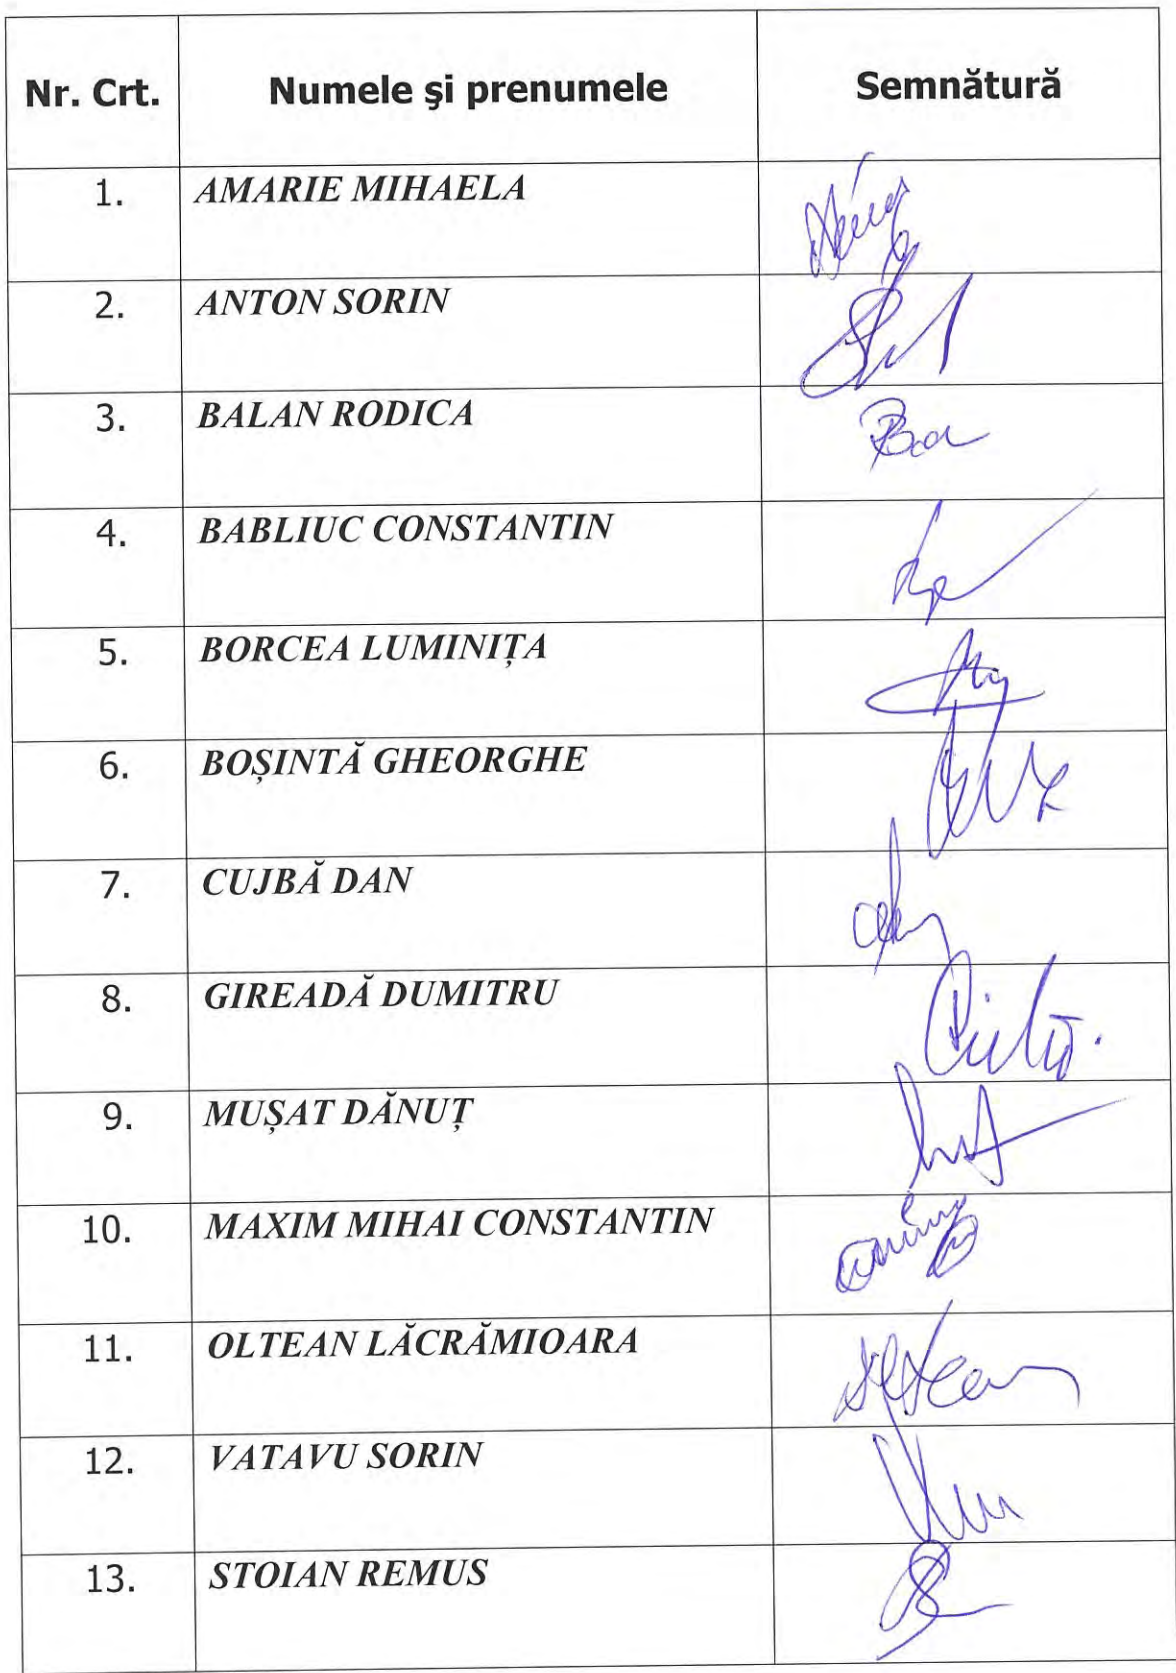 Nr. Crt. Numele şi prenumele Semnătură
1. AMARIE MIHAELA
2. ANTON SORIN
3. BALAN RODICA
4. BABLIUC CONSTANTIN
5. BORCEA LUMINIȚA
6. BOȘINTĂ GHEORGHE
7. CUJBĂ DAN
8. GIREADĂ DUMITRU
9. MUȘAT DĂNUȚ
10. MAXIM MIHAI CONSTANTIN
11. OLTEAN LĂCRĂMIOARA
12. VATAVU SORIN
13. STOIAN REMUS